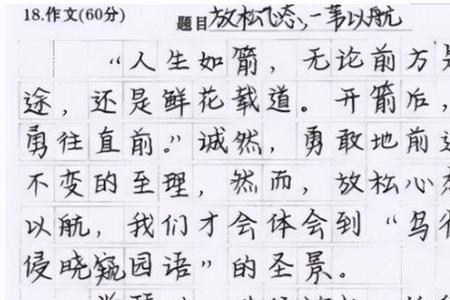 18.作文(60分) 题目 放松心态,一苇以航
“人生如箭，无论前方是
途，还是鲜花载道。开箭后，
勇往直前。”诚然，勇敢地前进
不变的至理，然而，放松心态
以航，我们才会体会到“鸟
侵晓窥园语”的圣景。